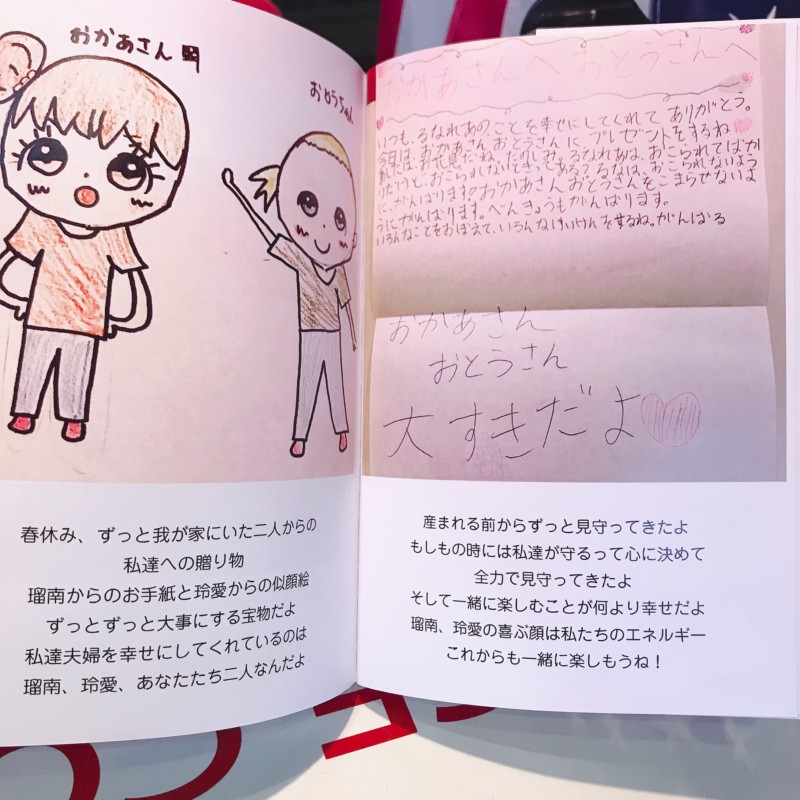 おかあさん
おとうちゃん
春休み、ずっと我が家にいた二人からの
私達への贈り物
瑠南からのお手紙と玲愛からの似顔絵
ずっとずっと大事にする宝物だよ
私達夫婦を幸せにしてくれているのは
瑠南、玲愛、あなたたち二人なんだよ
おかあさんへ おとうさんへ
いつも、るなれあのことを幸せにしてくれてありがとう。
今日は、おかあさんおとうさんに、プレゼントをするね
お花見だね、たのしみ。るなれあは、おこられてばか
るなは、おこられないよう
に、がんばります!おかあさんおとうさんをこまらせないよ
うにがんばります。べんきょうもがんばります。
いろんなことをおぼえて、いろんなけいけんをするね。がんばる
おかあさん
おとうさん
大すきだよ
産まれる前からずっと見守ってきたよ
もしもの時には私達が守るって心に決めて
全力で見守ってきたよ
そして一緒に楽しむことが何より幸せだよ
瑠南、玲愛の喜ぶ顔は私たちのエネルギー
これからも一緒に楽しもうね！